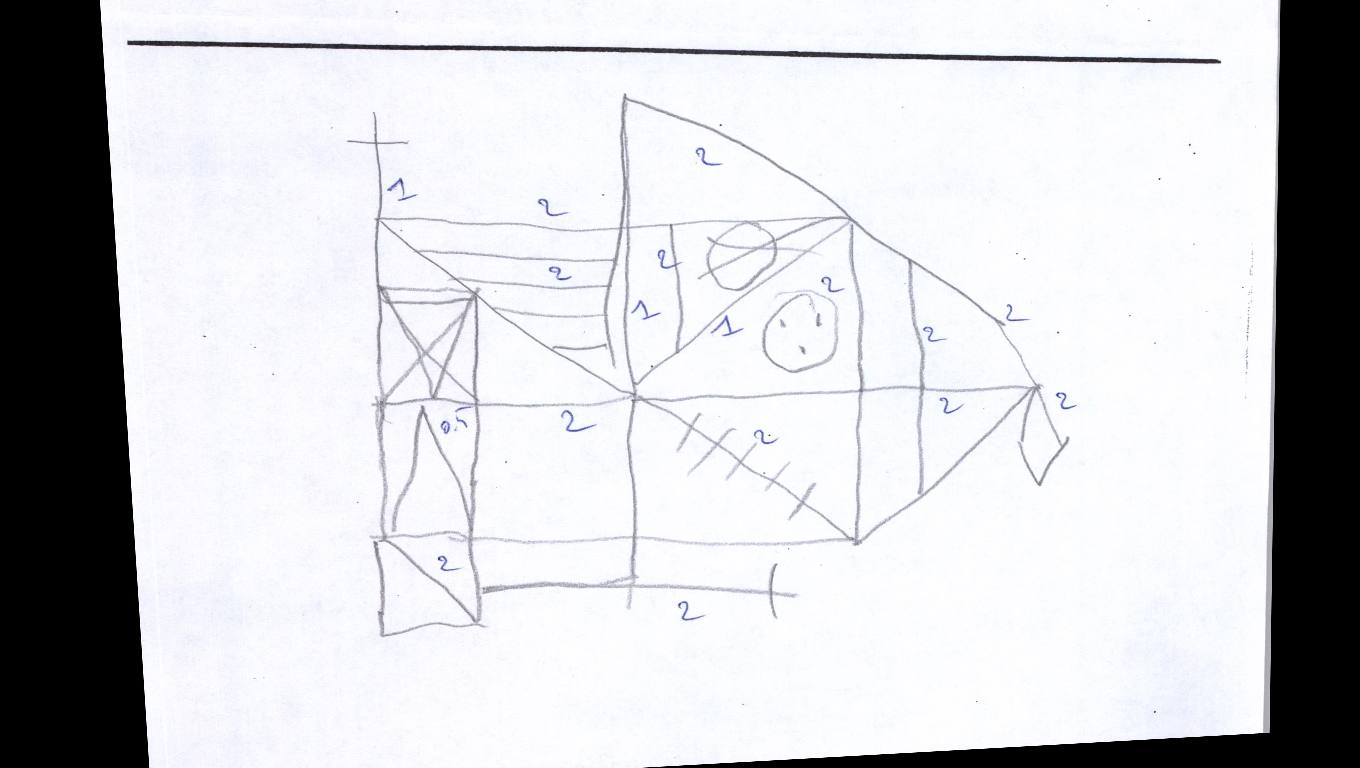 2
1
2
2
2
2
1
1
2
2
2
2
0.5
2
2
2
2
2